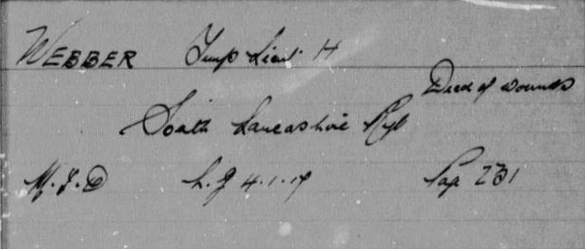 WEBBER Temp Lieut. H
Died of wounds
South Lancashire Rgt
M.I.D L.G 4.1.17 Page 231